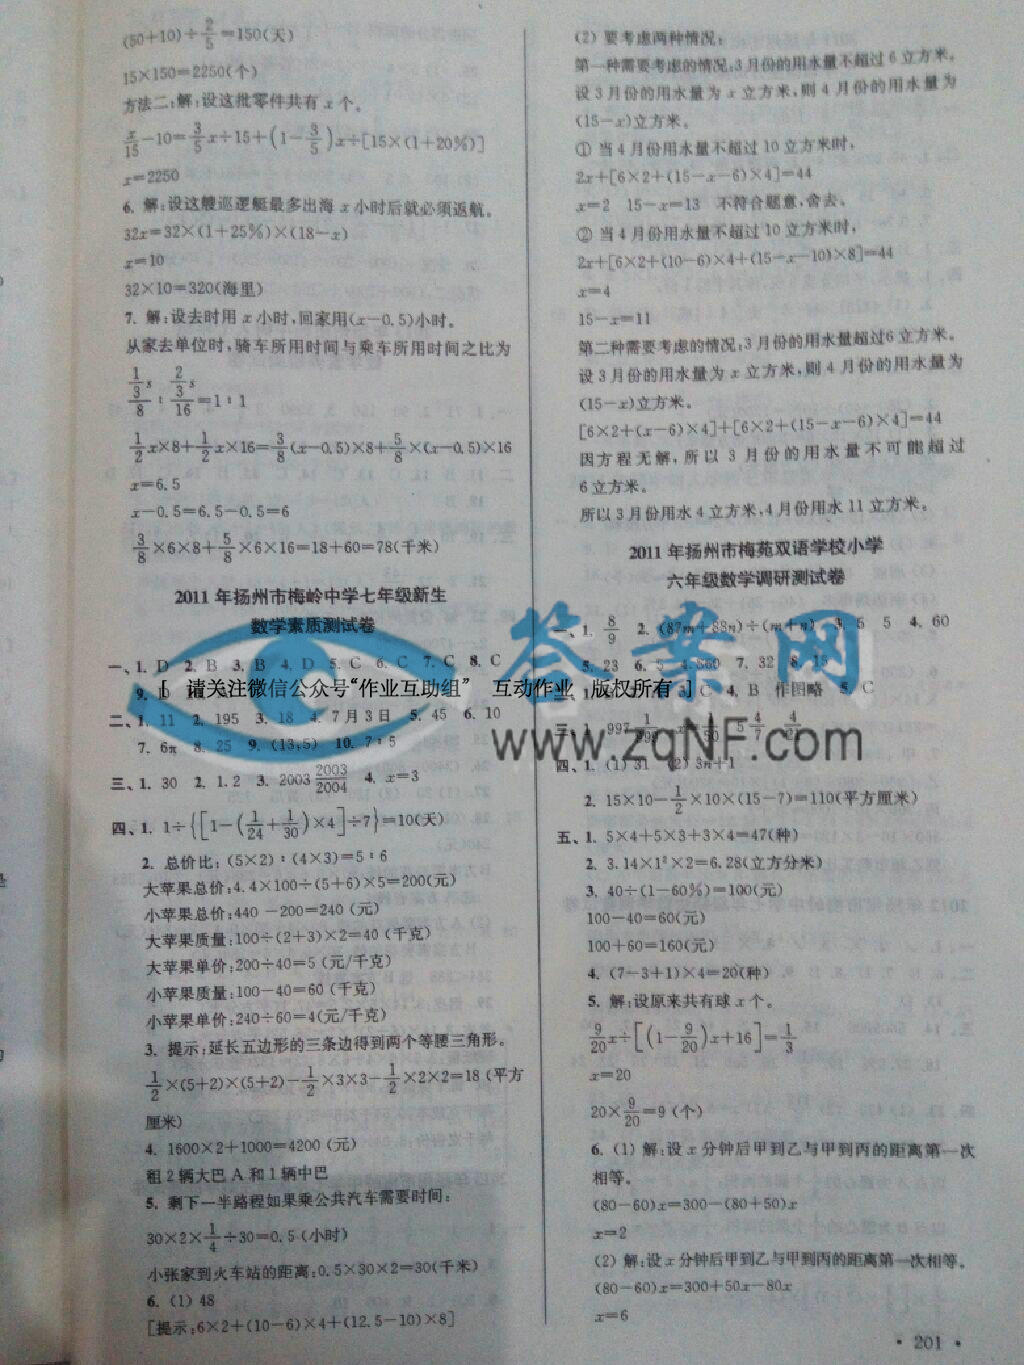 (50+10)÷2/5=150(天)
15×150=2250(个)
方法二:解:设这批零件共有 x 个。
x/15-10=3/5x÷15+(1-3/5)x÷[15×(1+20%)]
x=2250
6. 解:设这艘巡逻艇最多出海 x 小时后就必须返航。
32x=32×(1+25%)×(18-x)
x=10
32×10=320(海里)
7. 解:设去时用 x 小时,回家用(x-0.5)小时。
从家去单位时,骑车所用时间与乘车所用时间之比为
1/3s/8:2/3s/16=1:1
1/2x×8+1/2x×16=3/8(x-0.5)×8+5/8×(x-0.5)×16
x=6.5
x-0.5=6.5-0.5=6
3/8×6×8+5/8×6×16=18+60=78(千米)
2011 年扬州市梅岭中学七年级新生
数学素质测试卷
一、1. D 2. B 3. B 4. D 5. C 6. C 7. C 8. C
9.
[ 请关注微信公众号“作业互助组” 互动作业 版权所有 ]
二、1. 11 2. 195 3. 18 4. 7月3日 5. 45 6. 10
7. 6π 8. 25 9. (13,5) 10. 7:5
三、1. 30 2. 1.2 3. 2003 2003/2004 4. x=3
四、1. 1÷{[1-(1/24+1/30)×4]÷7}=10(天)
2. 总价比:(5×2):(4×3)=5:6
大苹果总价:4.4×100÷(5+6)×5=200(元)
小苹果总价:440-200=240(元)
大苹果质量:100÷(2+3)×2=40(千克)
大苹果单价:200÷40=5(元/千克)
小苹果质量:100-40=60(千克)
小苹果单价:240÷60=4(元/千克)
3. 提示:延长五边形的三条边得到两个等腰三角形。
1/2×(5+2)×(5+2)-1/2×3×3-1/2×2×2=18(平方
厘米)
4. 1600×2+1000=4200(元)
租2辆大巴A和1辆中巴
5. 剩下一半路程如果乘公共汽车需要时间:
30×2×1/4÷30=0.5(小时)
小张家到火车站的距离:0.5×30×2=30(千米)
6. (1) 48
[提示:6×2+(10-6)×4+(12.5-10)×8]
(2) 要考虑两种情况:
第一种需要考虑的情况:3月份的用水量不超过6立方米,
设3月份的用水量为 x 立方米,则4月份的用水量为
(15-x)立方米。
① 当4月份用水量不超过10立方米时,
2x+[6×2+(15-x-6)×4]=44
x=2 15-x=13 不符合题意,舍去。
② 当4月份用水量不超过10立方米时,
2x+[6×2+(10-6)×4+(15-x-10)×8]=44
x=4
15-x=11
第二种需要考虑的情况:3月份的用水量超过6立方米,
设3月份的用水量为 x 立方米,则4月份的用水量为
(15-x)立方米。
[6×2+(x-6)×4]+[6×2+(15-x-6)×4]=44
因方程无解,所以3月份的用水量不可能超过
6立方米。
所以3月份用水4立方米,4月份用水11立方米。
2011年扬州市梅苑双语学校小学
六年级数学调研测试卷
一、1. 8/9 2. (87m+88n)÷(m+n) 3. 6 5 4. 60
5. 23 6. 5 4. 360 7. 32 8. 15
3. C 4. B 作图略 5. C
三、1. 997 1/999 5 4/7 4/21
四、1. (1) 31 (2) 3n+1
2. 15×10-1/2×10×(15-7)=110(平方厘米)
五、1. 5×4+5×3+3×4=47(种)
2. 3.14×1²×2=6.28(立方分米)
3. 40÷(1-60%)=100(元)
100-40=60(元)
100+60=160(元)
4. (7-3+1)×4=20(种)
5. 解:设原来共有球 x 个。
9/20x÷[(1-9/20)x+16]=1/3
x=20
20×9/20=9(个)
6. (1) 解:设 x 分钟后甲到乙与甲到丙的距离第一次
相等。
(80-60)x=300-(80+50)x
x=2
(2) 解:设 x 分钟后甲到乙与甲到丙的距离第一次相等。
(80-60)x=300+50x-80x
x=6
答案网
www.zqNF.com
• 201 •